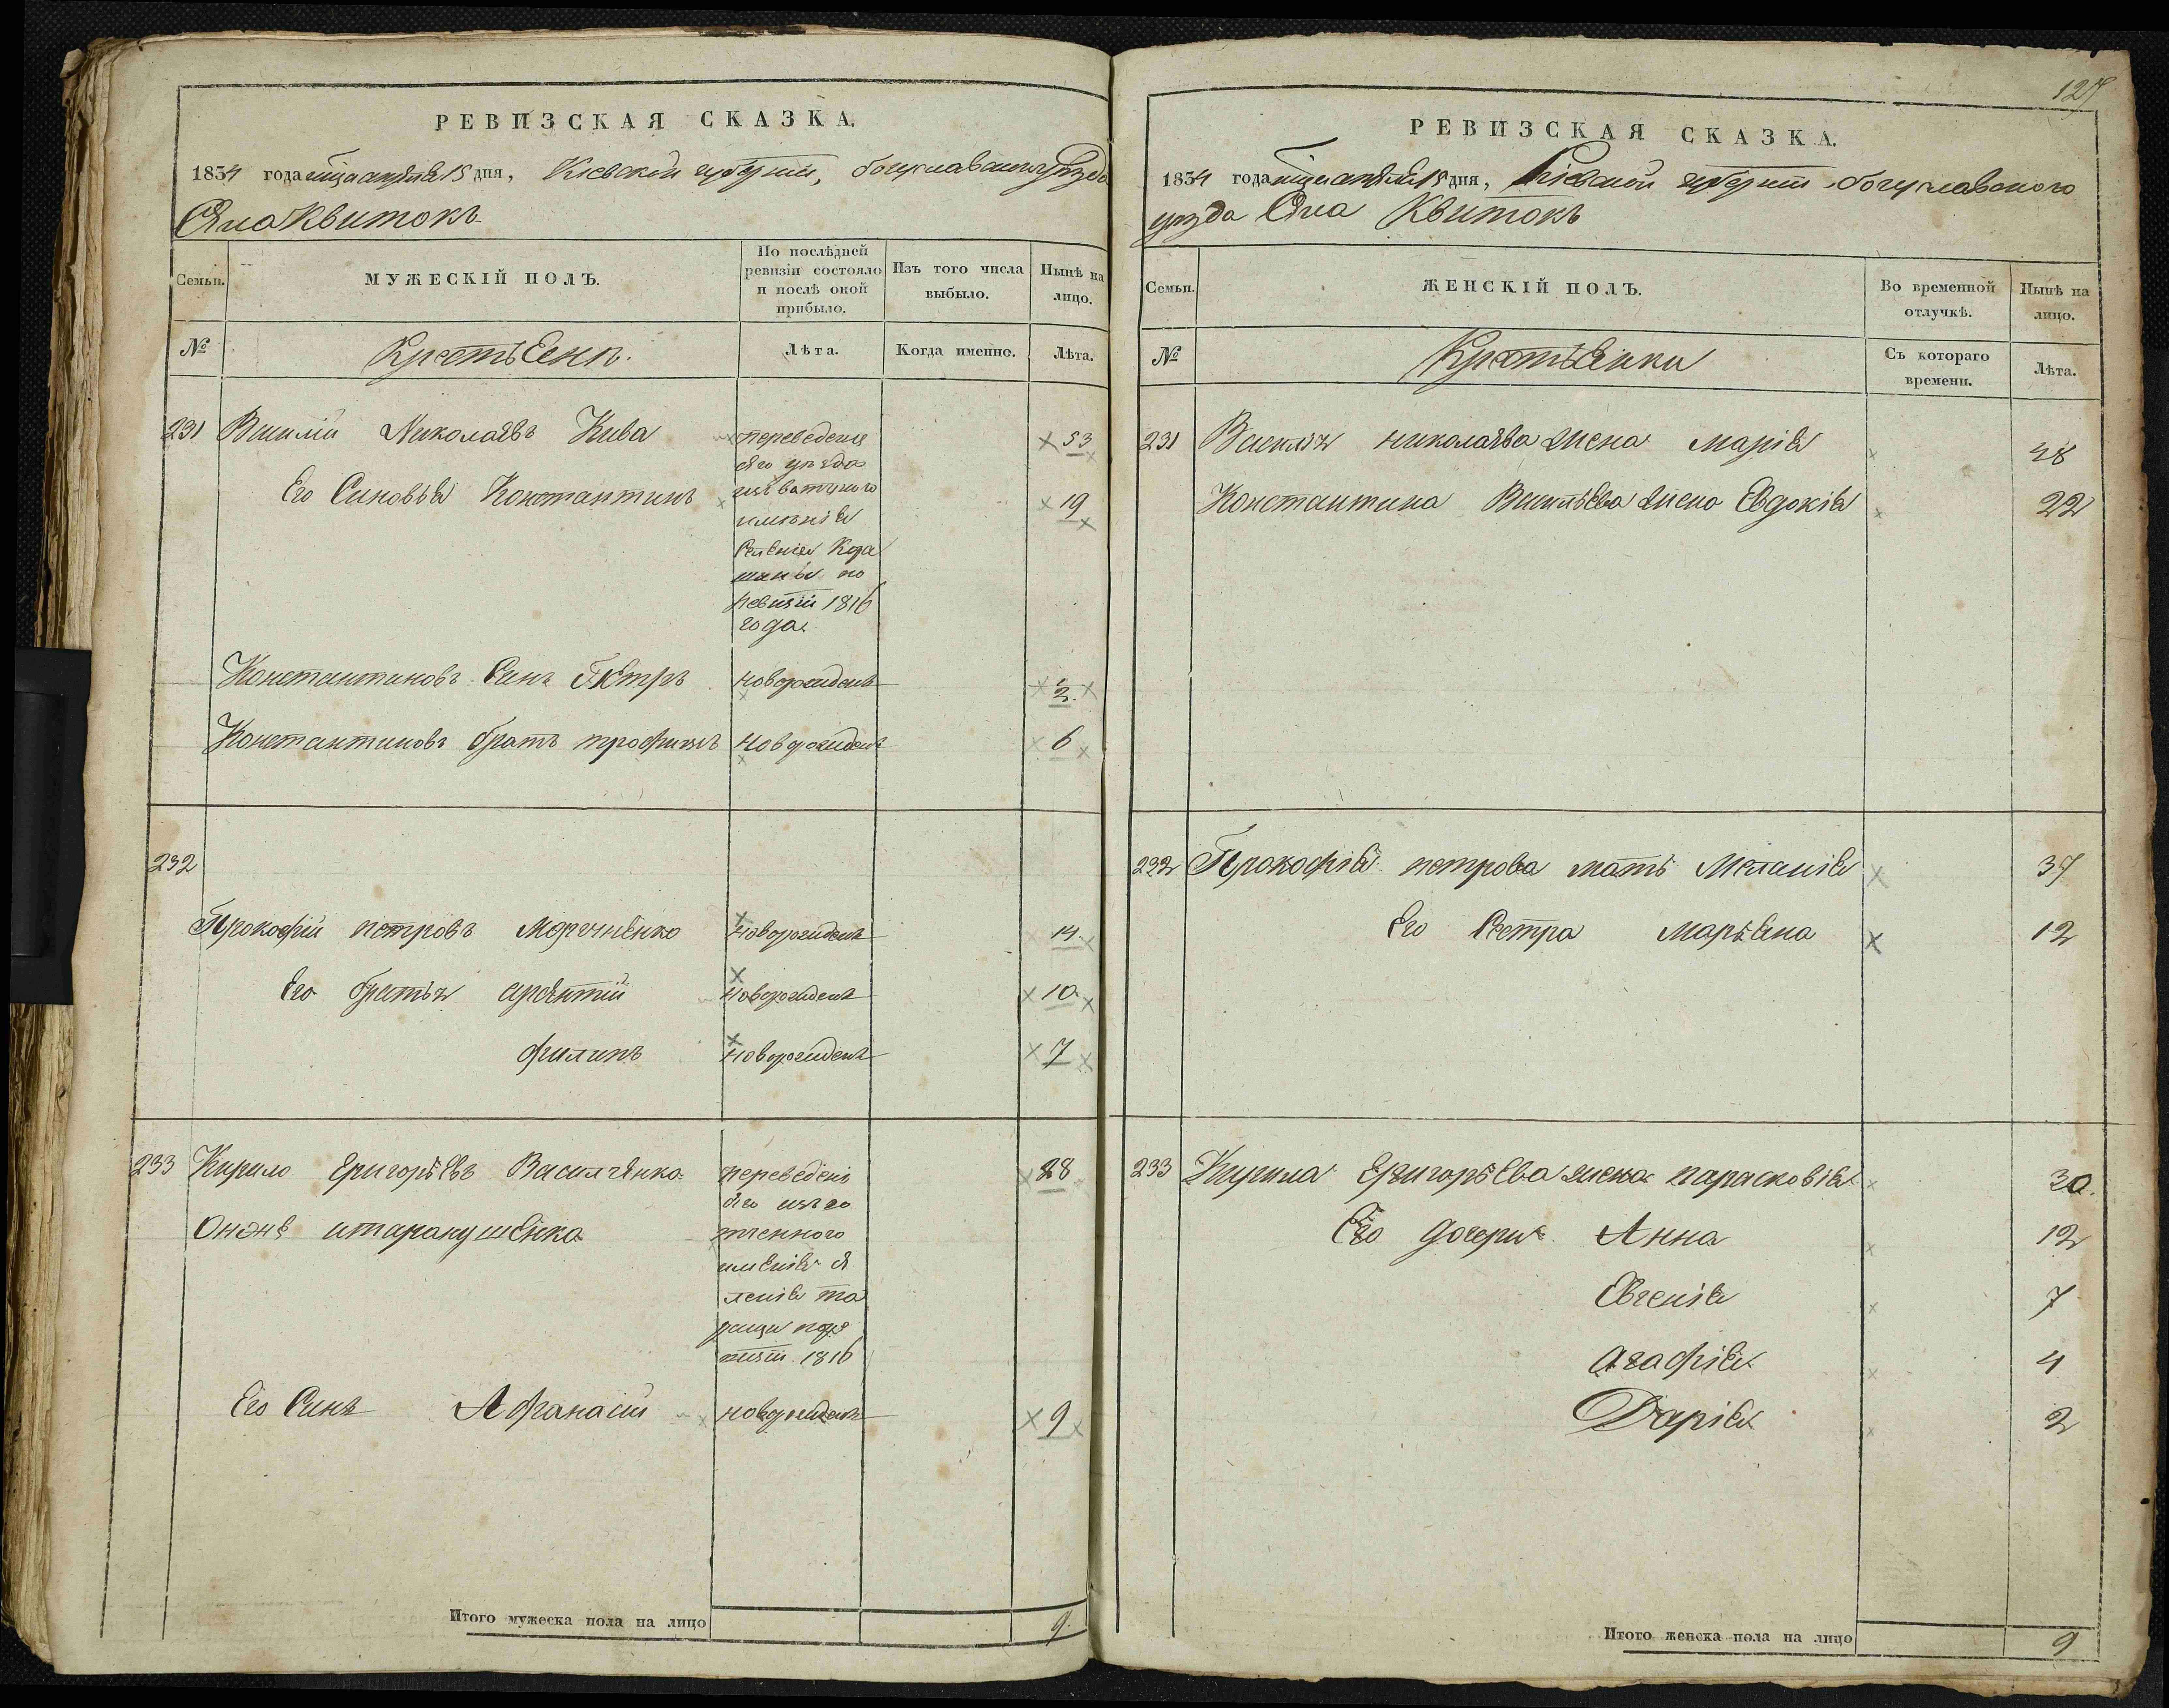 РЕВИЗСКАЯ СКАЗКА.
1834 года мца апрѣля 15 дня, Кіевской губерніи, богуславского уѣзда
Села Квитокъ
Семьи.
МУЖЕСКІЙ ПОЛЪ.
По послѣдней ревизіи состояло и послѣ оной прибыло.
Изъ того числа выбыло.
Нынѣ на лицо.
№
Крестьене.
Лѣта.
Когда именно.
Лѣта.
231 Василий Николаевъ Кива 53
переведене
его уезда
имѣнія
по
ревизіи 1816
года
Его Синовья Константинъ 19
Константиновъ Синъ Петръ новорожденъ 3
Константиновъ братъ трофимъ новорожденъ 6
232
Прокофій петровъ Марченко новорожденъ 14
Его братья новорожденъ 10
филипъ новорожденъ 7
233 Кирило Григорьевъ Василченко 28
Онже
переведенъ
его изъ
имения
1816
Его Синъ Афанасий новорожденъ 9
Итого мужеска пола на лицо 9
127
РЕВИЗСКАЯ СКАЗКА.
1834 года мца апрѣля 15 дня, Кіевской губерніи богуславского
уезда Села Квитокъ
Семьи.
ЖЕНСКІЙ ПОЛЪ.
Во временной отлучкѣ.
Нынѣ на лицо.
№
Крестьянки
Съ котораго времени.
Лѣта.
231 Василія николаева жена Марія 48
Константина Васильева жена Евдокія 22
232 Прокофія петрова мать Меланія 37
Его Сестра Марьяна 12
233 Кирила Григорьева жена парасковія 30
Его дочери Анна 12
Евгенія 7
Агафія 4
Дарія 2
Итого женска пола на лицо 9